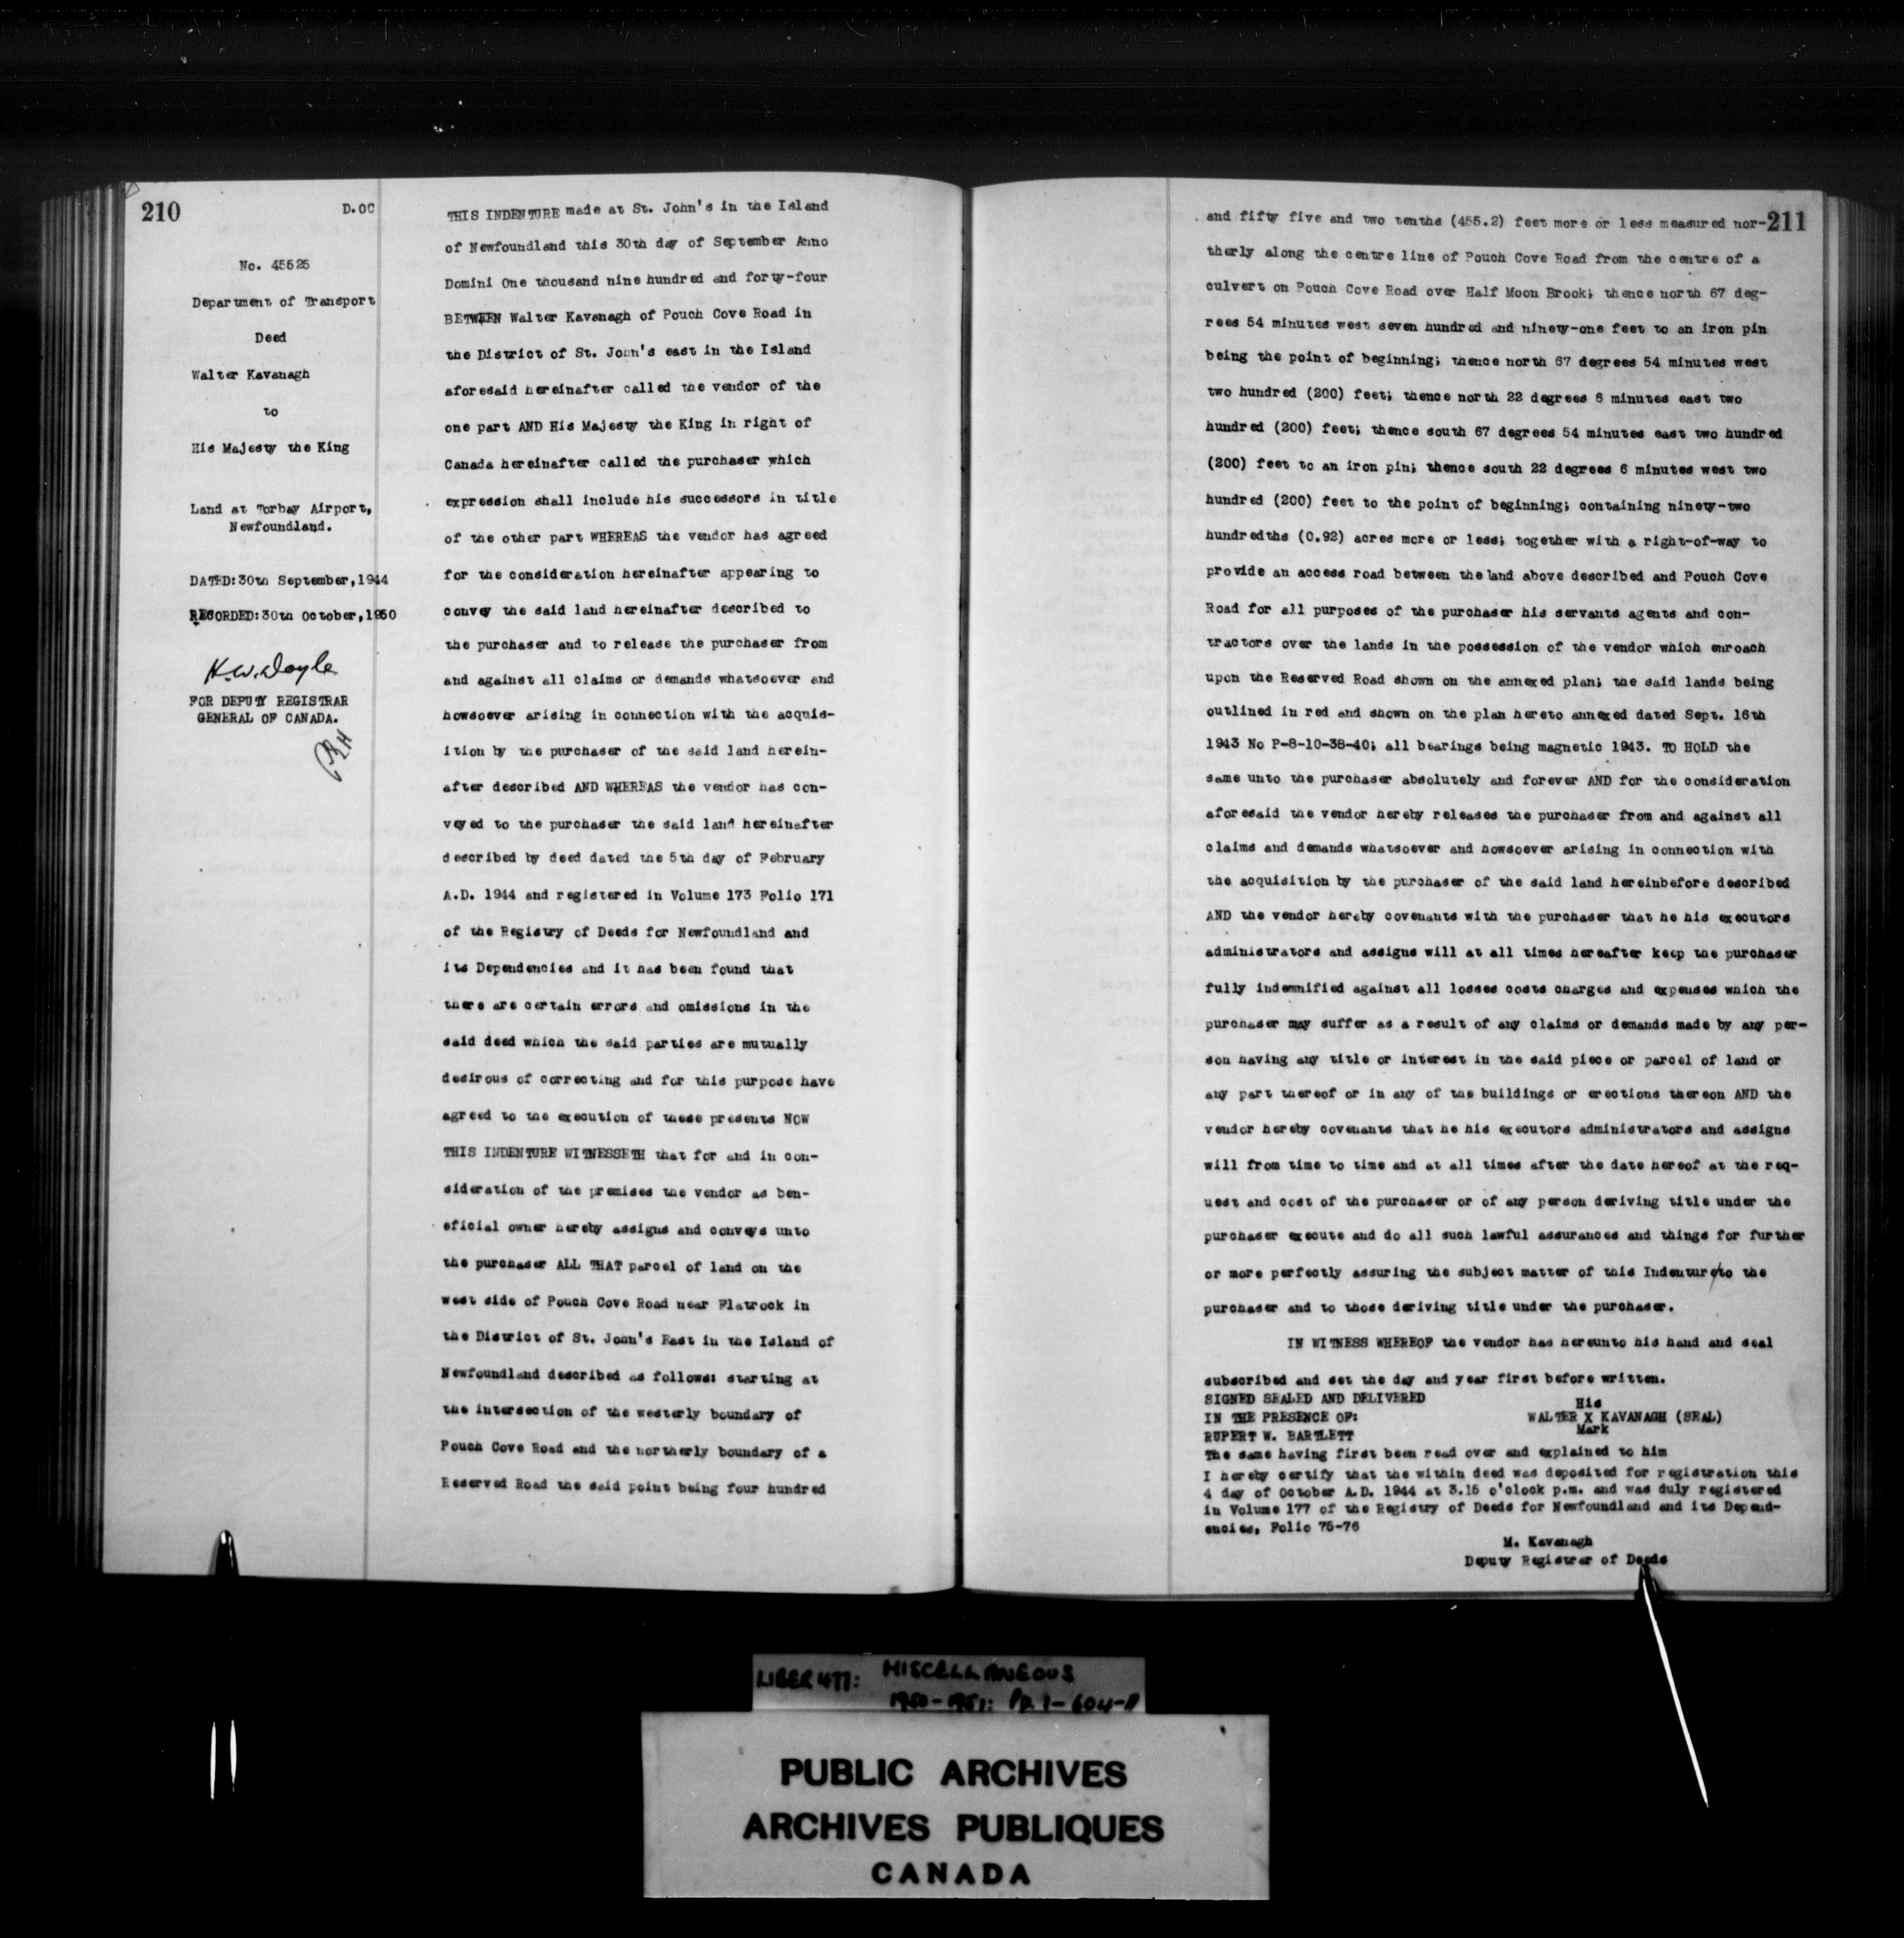 210
D.OC
No. 45525
Department of Transport
Deed
Walter Kavanagh
to
His Majesty the King
Land at Torbay Airport,
Newfoundland.
DATED:30th September,1944
RECORDED:30th October,1950
H.W. Doyle
FOR DEPUTY REGISTRAR
GENERAL OF CANADA.
THIS INDENTURE made at St. John's in the Island
of Newfoundland this 30th day of September Anno
Domini One thousand nine hundred and forty-four
BETWEEN Walter Kavanagh of Pouch Cove Road in
the District of St. John's east in the Island
aforesaid hereinafter called the vendor of the
one part AND His Majesty the King in right of
Canada hereinafter called the purchaser which
expression shall include his successors in title
of the other part WHEREAS the vendor has agreed
for the consideration hereinafter appearing to
convey the said land hereinafter described to
the purchaser and to release the purchaser from
and against all claims or demands whatsoever and
howsoever arising in connection with the acquis-
ition by the purchaser of the said land herein-
after described AND WHEREAS the vendor has con-
veyed to the purchaser the said land hereinafter
described by deed dated the 5th day of February
A.D. 1944 and registered in Volume 173 Folio 171
of the Registry of Deeds for Newfoundland and
its Dependencies and it has been found that
there are certain errors and omissions in the
said deed which the said parties are mutually
desirous of correcting and for this purpose have
agreed to the execution of these presents NOW
THIS INDENTURE WITNESSETH that for and in con-
sideration of the premises the vendor as ben-
eficial owner hereby assigns and conveys unto
the purchaser ALL THAT parcel of land on the
west side of Pouch Cove Road near Flatrock in
the District of St. John's East in the Island of
Newfoundland described as follows: starting at
the intersection of the westerly boundary of
Pouch Cove Road and the northerly boundary of a
Reserved Road the said point being four hundred
211
and fifty five and two tenths (455.2) feet more or less measured nor-
therly along the centre line of Pouch Cove Road from the centre of a
culvert on Pouch Cove Road over Half Moon Brook; thence north 67 deg-
rees 54 minutes west seven hundred and ninety-one feet to an iron pin
being the point of beginning; thence north 67 degrees 54 minutes west
two hundred (200) feet; thence north 22 degrees 6 minutes east two
hundred (200) feet; thence south 67 degrees 54 minutes east two hundred
(200) feet to an iron pin; thence south 22 degrees 6 minutes west two
hundred (200) feet to the point of beginning; containing ninety-two
hundredths (0.92) acres more or less; together with a right-of-way to
provide an access road between the land above described and Pouch Cove
Road for all purposes of the purchaser his servants agents and con-
tractors over the lands in the possession of the vendor which enroach
upon the Reserved Road shown on the annexed plan; the said lands being
outlined in red and shown on the plan hereto annexed dated Sept. 16th
1943 No P-8-10-38-40; all bearings being magnetic 1943. TO HOLD the
same unto the purchaser absolutely and forever AND for the consideration
aforesaid the vendor hereby releases the purchaser from and against all
claims and demands whatsoever and howsoever arising in connection with
the acquisition by the purchaser of the said land hereinbefore described
AND the vendor hereby covenants with the purchaser that he his executors
administrators and assigns will at all times hereafter keep the purchaser
fully indemnified against all losses costs charges and expenses which the
purchaser may suffer as a result of any claims or demands made by any per-
son having any title or interest in the said piece or parcel of land or
any part thereof or in any of the buildings or erections thereon AND the
vendor hereby covenants that he his executors administrators and assigns
will from time to time and at all times after the date hereof at the req-
uest and cost of the purchaser or of any person deriving title under the
purchaser execute and do all such lawful assurances and things for further
or more perfectly assuring the subject matter of this Indenture/to the
purchaser and to those deriving title under the purchaser.
IN WITNESS WHEREOF the vendor has hereunto his hand and seal
subscribed and set the day and year first before written.
SIGNED SEALED AND DELIVERED
IN THE PRESENCE OF:
RUPERT W. BARTLETT
His
WALTER X KAVANAGH (SEAL)
Mark
The same having first been read over and explained to him
I hereby certify that the within deed was deposited for registration this
4 day of October A.D. 1944 at 3.15 o'clock p.m. and was duly registered
in Volume 177 of the Registry of Deeds for Newfoundland and its Depend-
encies, Folio 75-76
M. Kavanagh
Deputy Registrar of Deeds
LIBER 477: MISCELLANEOUS
1950-1951: Pp. 1-604-
PUBLIC ARCHIVES
ARCHIVES PUBLIQUES
CANADA